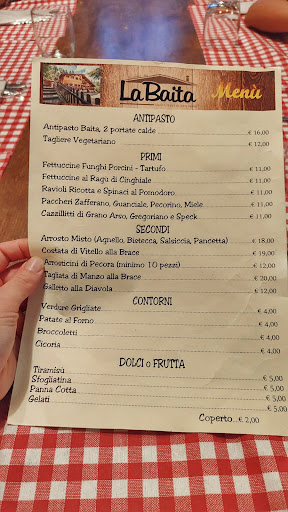 LaBaita Menù
ANTIPASTO
Antipasto Baita, 2 portate calde € 16,00
Tagliere Vegetariano € 12,00
PRIMI
Fettuccine Funghi Porcini - Tartufo € 11,00
Fettuccine al Ragù di Cinghiale € 11,00
Ravioli Ricotta e Spinaci al Pomodoro € 11,00
Paccheri Zafferano, Guanciale, Pecorino, Miele € 11,00
Cazzillitti di Grano Arso, Gregoriano e Speck € 11,00
SECONDI
Arrosto Misto (Agnello, Bistecca, Salsiccia, Pancetta) € 18,00
Costata di Vitello alla Brace € 19,00
Arrosticini di Pecora (minimo 10 pezzi) € 12,00
Tagliata di Manzo alla Brace € 20,00
Galletto alla Diavola € 12,00
CONTORNI
Verdure Grigliate € 4,00
Patate al Forno € 4,00
Broccoletti € 4,00
Cicoria € 4,00
DOLCI o FRUTTA
Tiramisù € 5,00
Sfogliatina € 5,00
Panna Cotta € 5,00
Gelati € 5,00
Coperto € 2,00